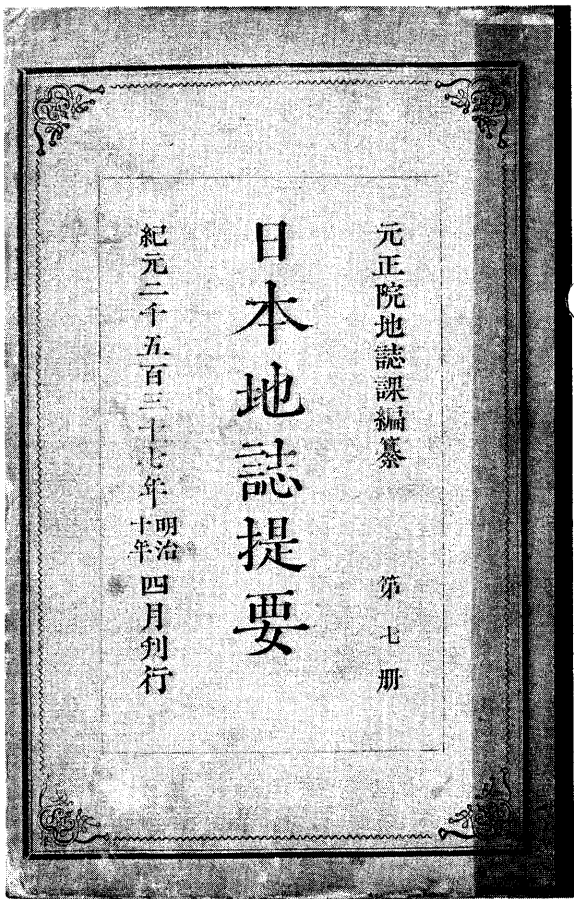 元正院地誌課編纂 第七册
日本地誌提要
紀元二千五百三十七年明治十年四月刋行